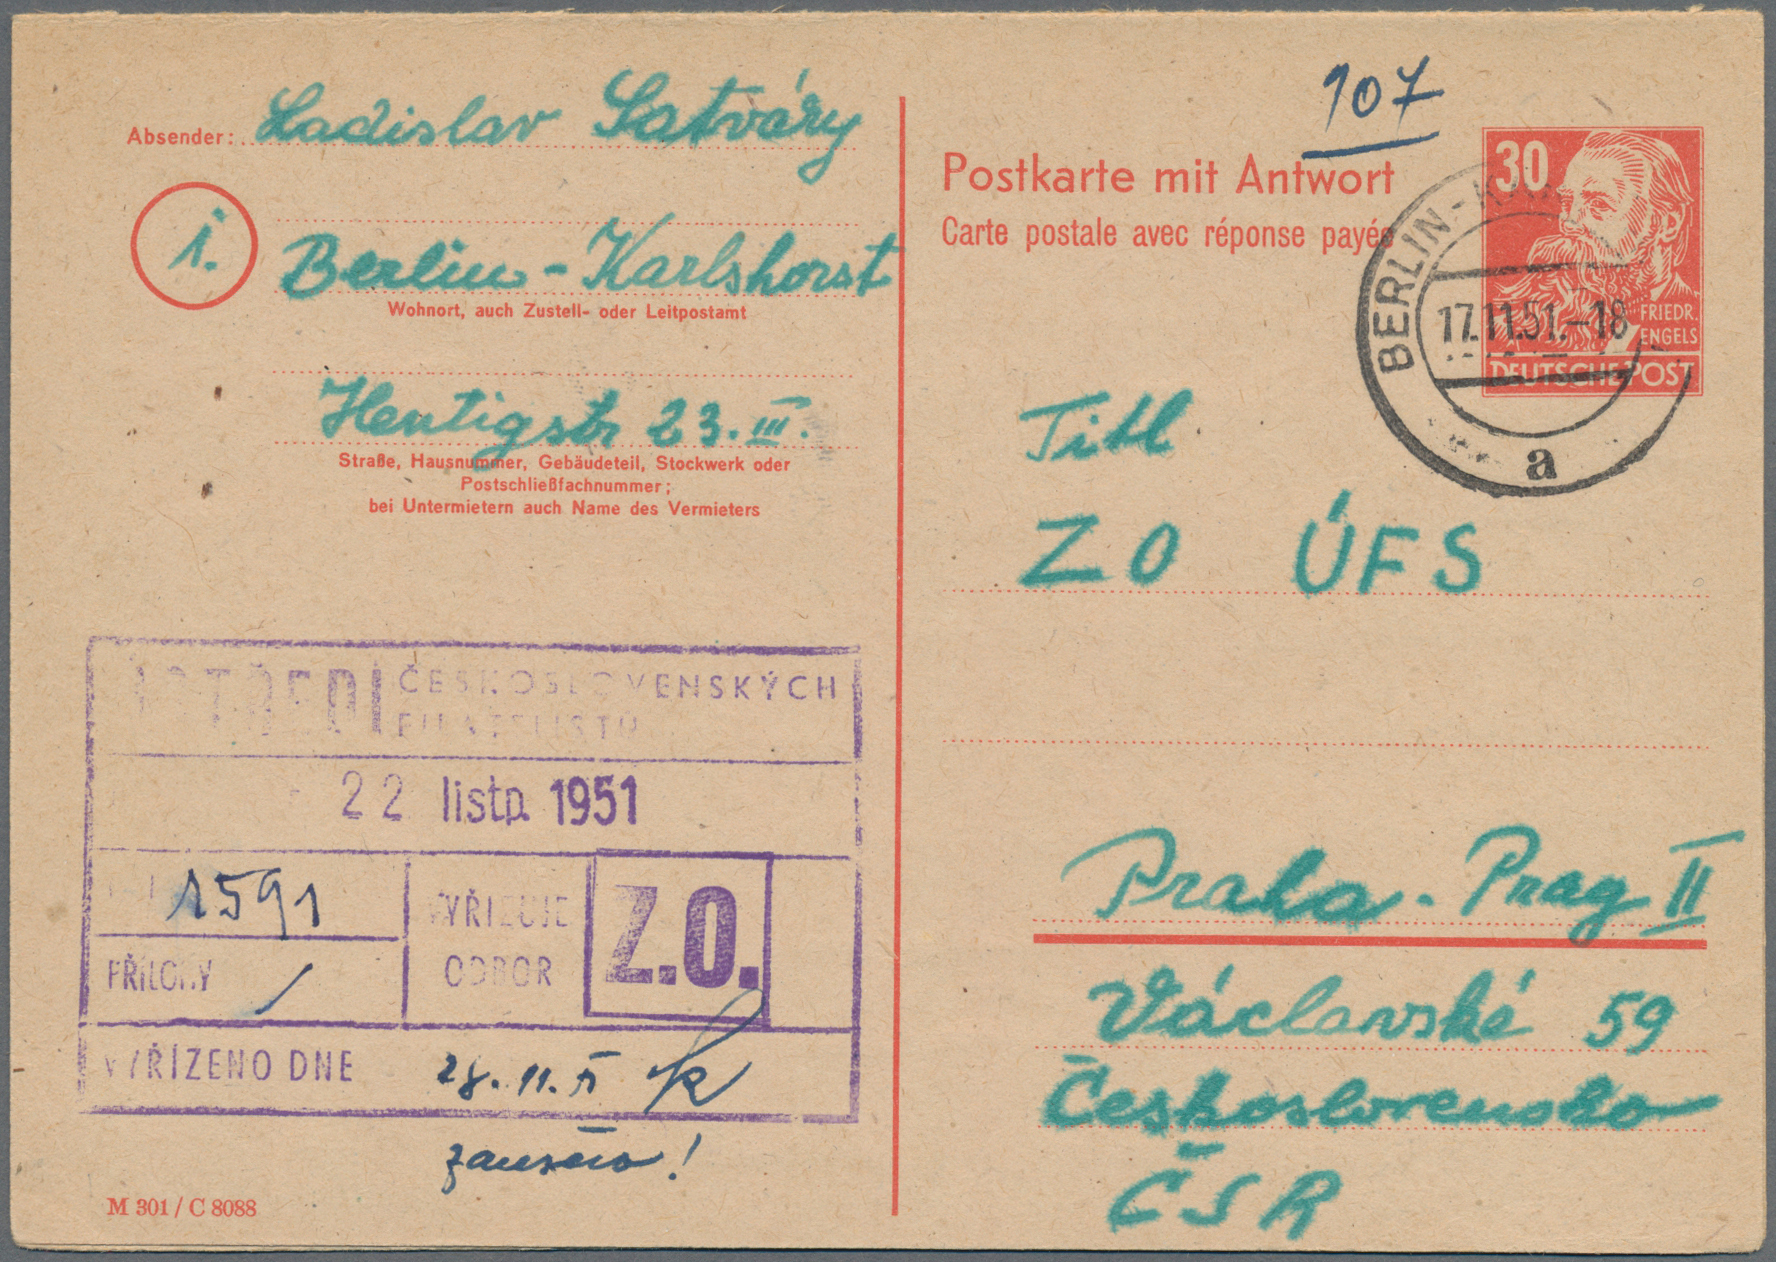 Absender: Ladislav Satváry
i. Berlin-Karlshorst
Wohnort, auch Zustell- oder Leitpostamt
Hentigstr 23. III.
Straße, Hausnummer, Gebäudeteil, Stockwerk oder
Postschließfachnummer;
bei Untermietern auch Name des Vermieters
ÚSTŘEDÍ ČESKOSLOVENSKÝCH
FILATELISTŮ
22 listp. 1951
1591
VYŘIZUJE
ODBOR
Z.O.
PŘÍLOHY /
VYŘÍZENO DNE 28.11.51
M 301 / C 8088
107
Postkarte mit Antwort
Carte postale avec réponse payée
30
FRIEDR.
ENGELS
DEUTSCHE POST
BERLIN-
17.11.51.-18
a
Titl
ZO ÚFS
Praha - Prag II
Václavské 59
Československo
ČSR